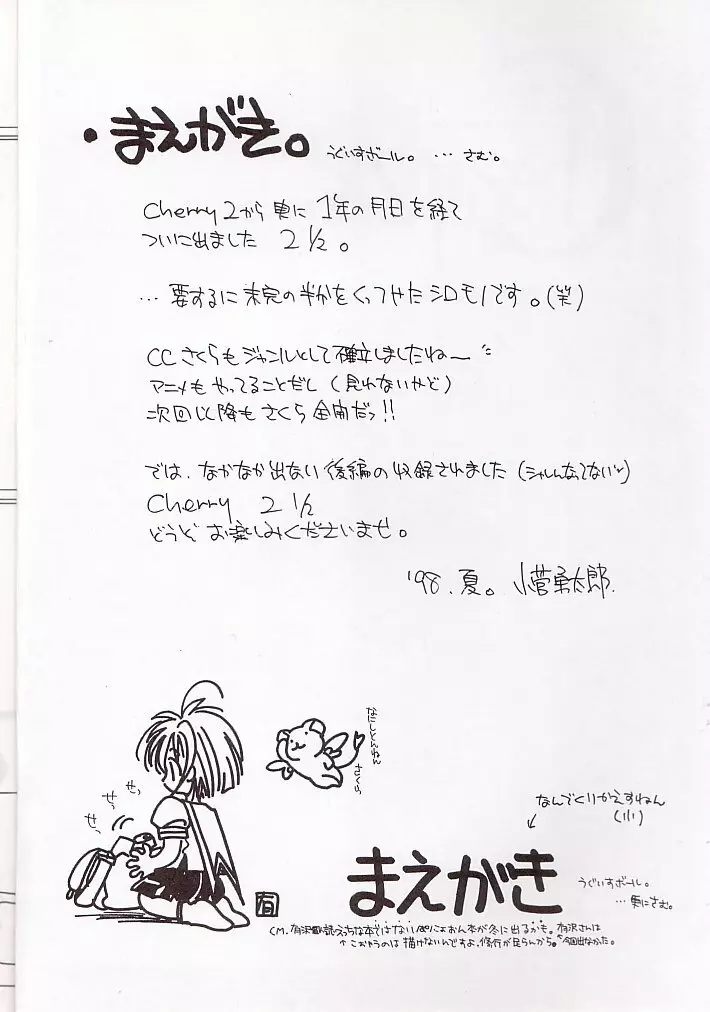 ・まえがき。 うぐいすボール。 … さむ。
Cherry 2から更に 1年の月日を経て
ついに出ました 2 1/2。
… 要するに未完の半分をくっつけたシロモノです。(笑)
CCさくらもジャンルとして確立しましたね〜
アニメもやってることだし (見れないけど)
次回以降もさくら全開だっ!!
では、なかなか出ない後編の収録されました (シャレんなってないッ)
Cherry 2 1/2
どうぞ お楽しみくださいませ。
'98. 夏。 小菅勇太郎.
なにしとんねん
さくら
せっ
せっ
せっ
有
なんでくりかえすねん
(小)
まえがき うぐいすボール。
… 更にさむ。
CM. 有沢 えっちな本ではないぱにょぱにょおん本が冬に出るかも。有沢さんは
↑ こおゆうのは描けないんですよ、修行が足らんから。今回出なかった。